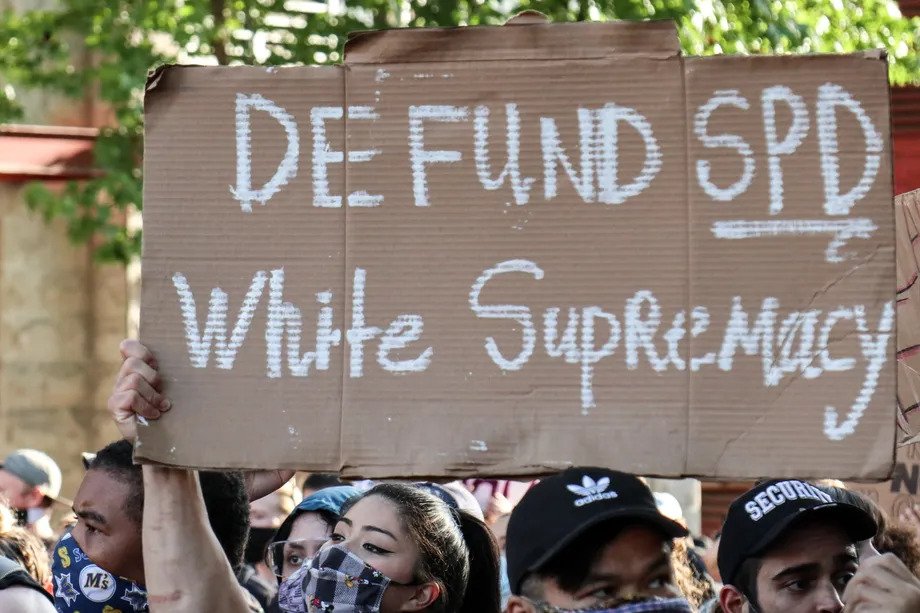 DEFUND SPD
White Supremacy
adidas
SECURITY
M's